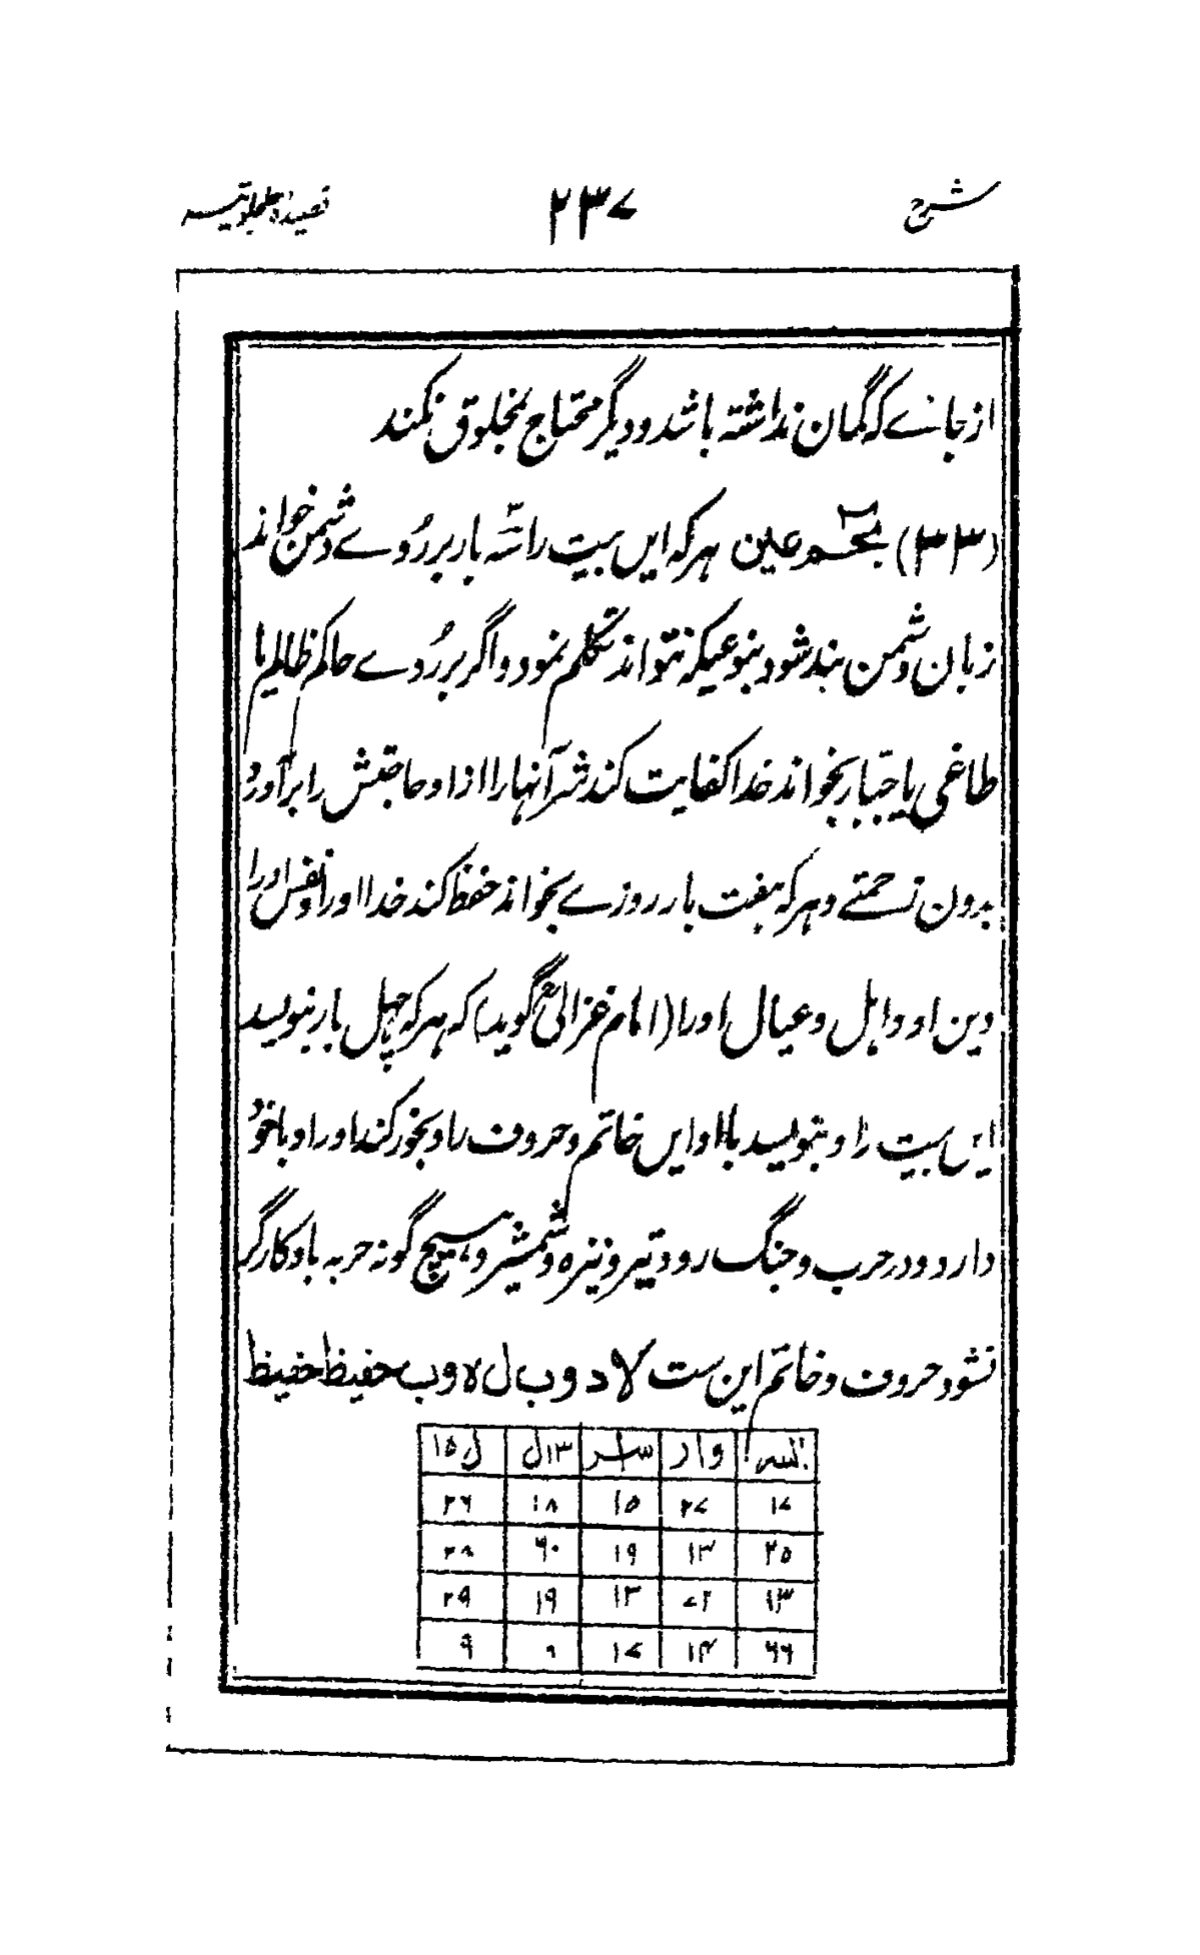 شرح ۲۳۷ قصیدۂ جلجلوتیه
از جائے که گمان نداشته باشد و دیگر محتاج بمخلوق نکند
(۳۳) عین هر که ایں بیت را سّه بار بر رُوے دشمن خواند
زبان دشمن بند شود بنوعیکه نتواند تکلم نمود و اگر بر رُوے حاکم ظالم یا
طاغی یا جبّار بخواند خدا کفایت کند شر آنها را از او و حاجتش را برآورد
بدون زحمتے و هر که هفت بار روزے بخواند حفظ کند خدا او را و نفس او را
و دین او و اهل و عیال او را (امام غزالیؒ گوید) که هر که چهل بار بنویسد
ایں بیت را و بنویسد با او ایں خاتم و حروف را و بخور کند او را و با خود
دارد و در حرب و جنگ رود تیر و نیزه و شمشیر و هیچ گونه حربه باو کارگر
نشود حروف و خاتم این ست لا د و ب ل ه و ب حفیظ حفیظ
وار ۱۳ل ل۱۵
۱۷ ۲۷ ۱۵ ۱۸ ۲۶
۲۵ ۱۳ ۱۹ ۶۰ ۲۸
۱۳ ۲۷ ۱۳ ۱۹ ۲۹
۶۶ ۱۴ ۱۷ ۹ ۹